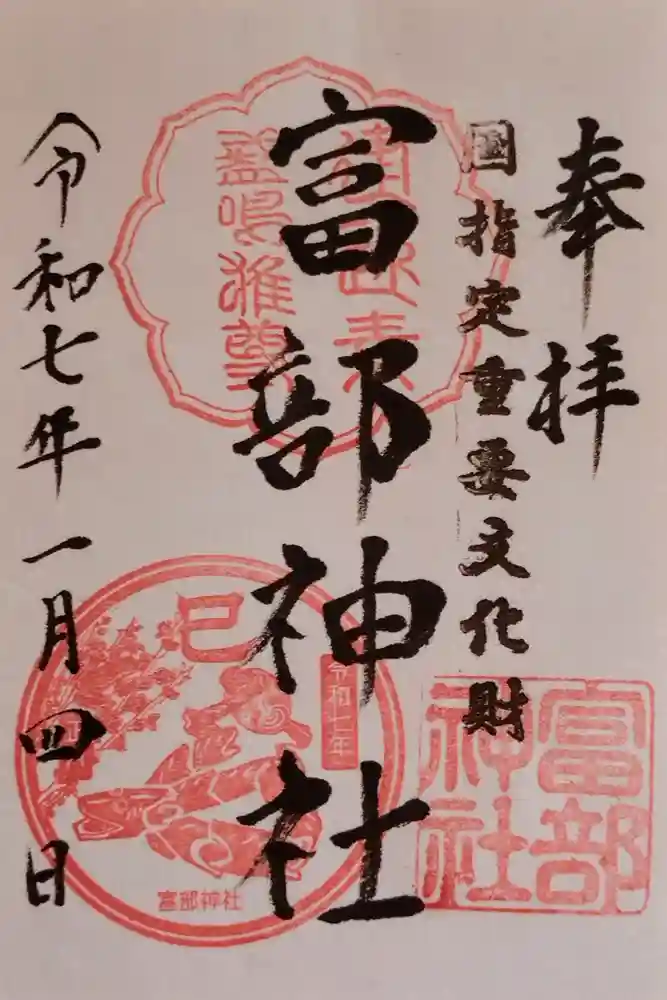 奉拝
国指定重要文化財
富部神社
令和七年一月四日
富部
神社
巳
令和七年
富部神社